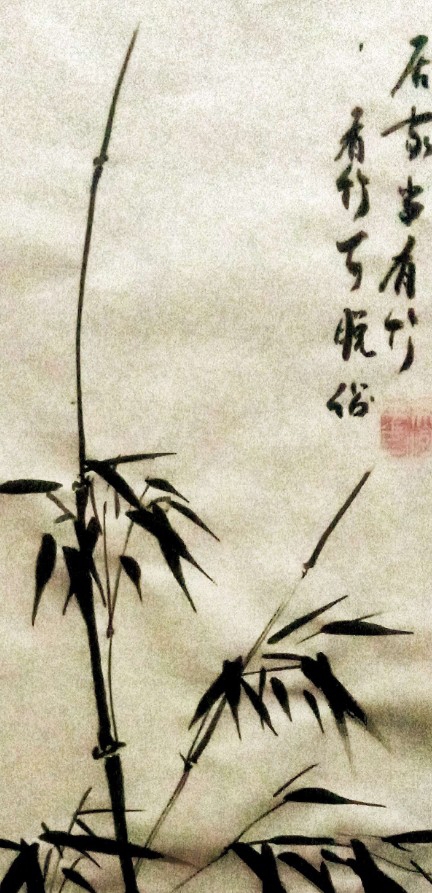 居家当有竹
看竹可脱俗